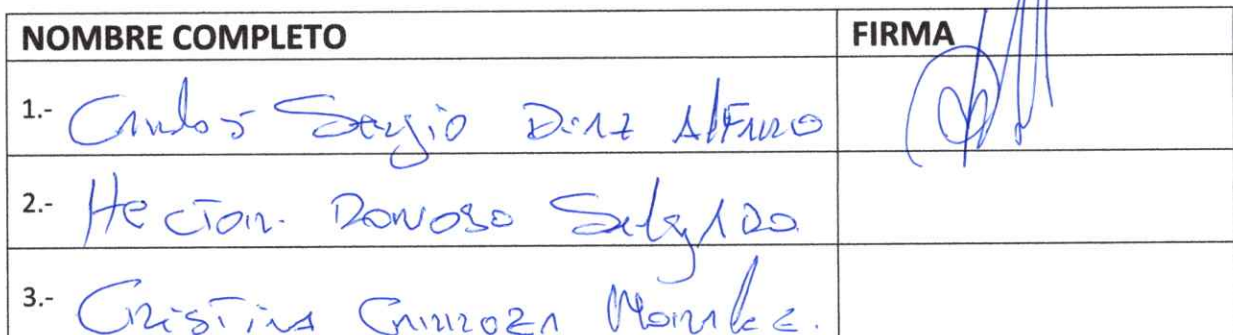 NOMBRE COMPLETO FIRMA
1.- Carlos Sergio Diaz Alfaro
2.- Hector Donoso Salgado
3.- Cristina Carroza